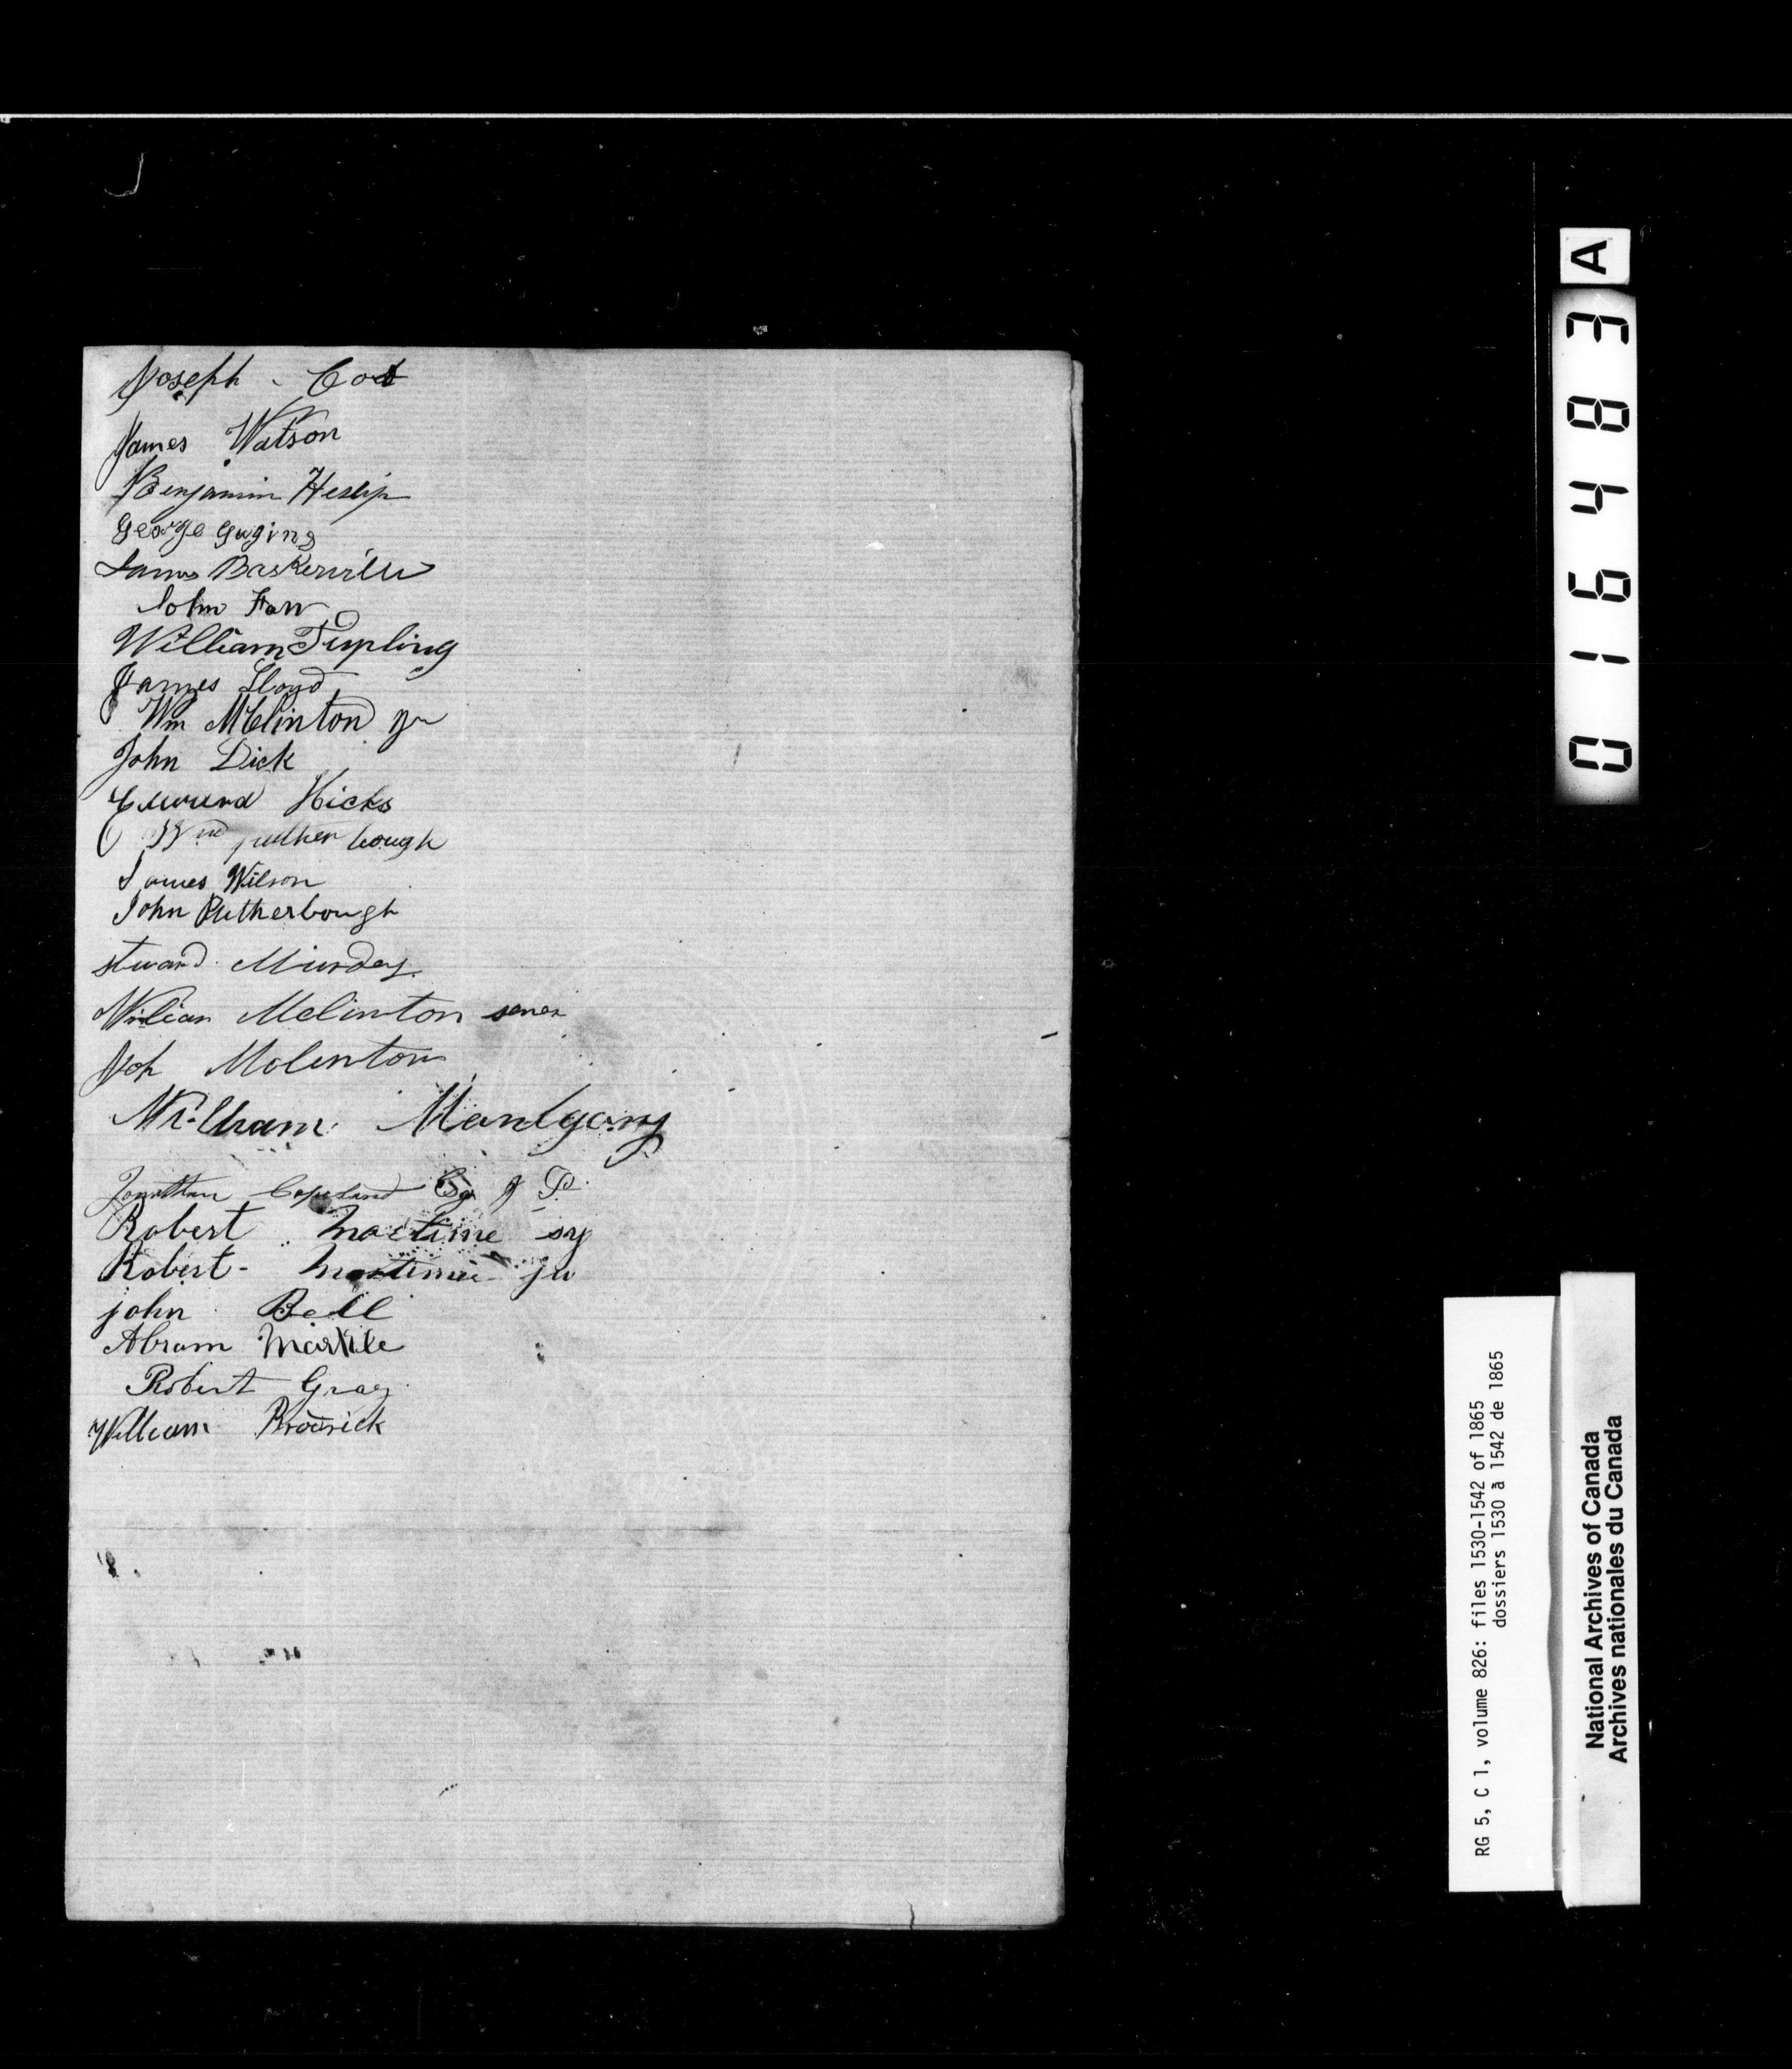 Joseph Cox
James Watson
Benjamin Heslip
George Guging
James Baskerville
John Farr
William Tupling
James Lloyd
Wm McClinton Jr
John Dick
Edward Hicks
Wm Putherbough
James Wilson
John Putherbough
stuard Murday
William Mclinton sener
Joh Mclinton
William
Jonathan Copeland Esq J P
Robert
Robert
john Bell
Abram Markle
Robert Gray
William Brodrick
A
016483
RG 5, C 1, volume 826: files 1530-1542 of 1865
dossiers 1530 à 1542 de 1865
National Archives of Canada
Archives nationales du Canada